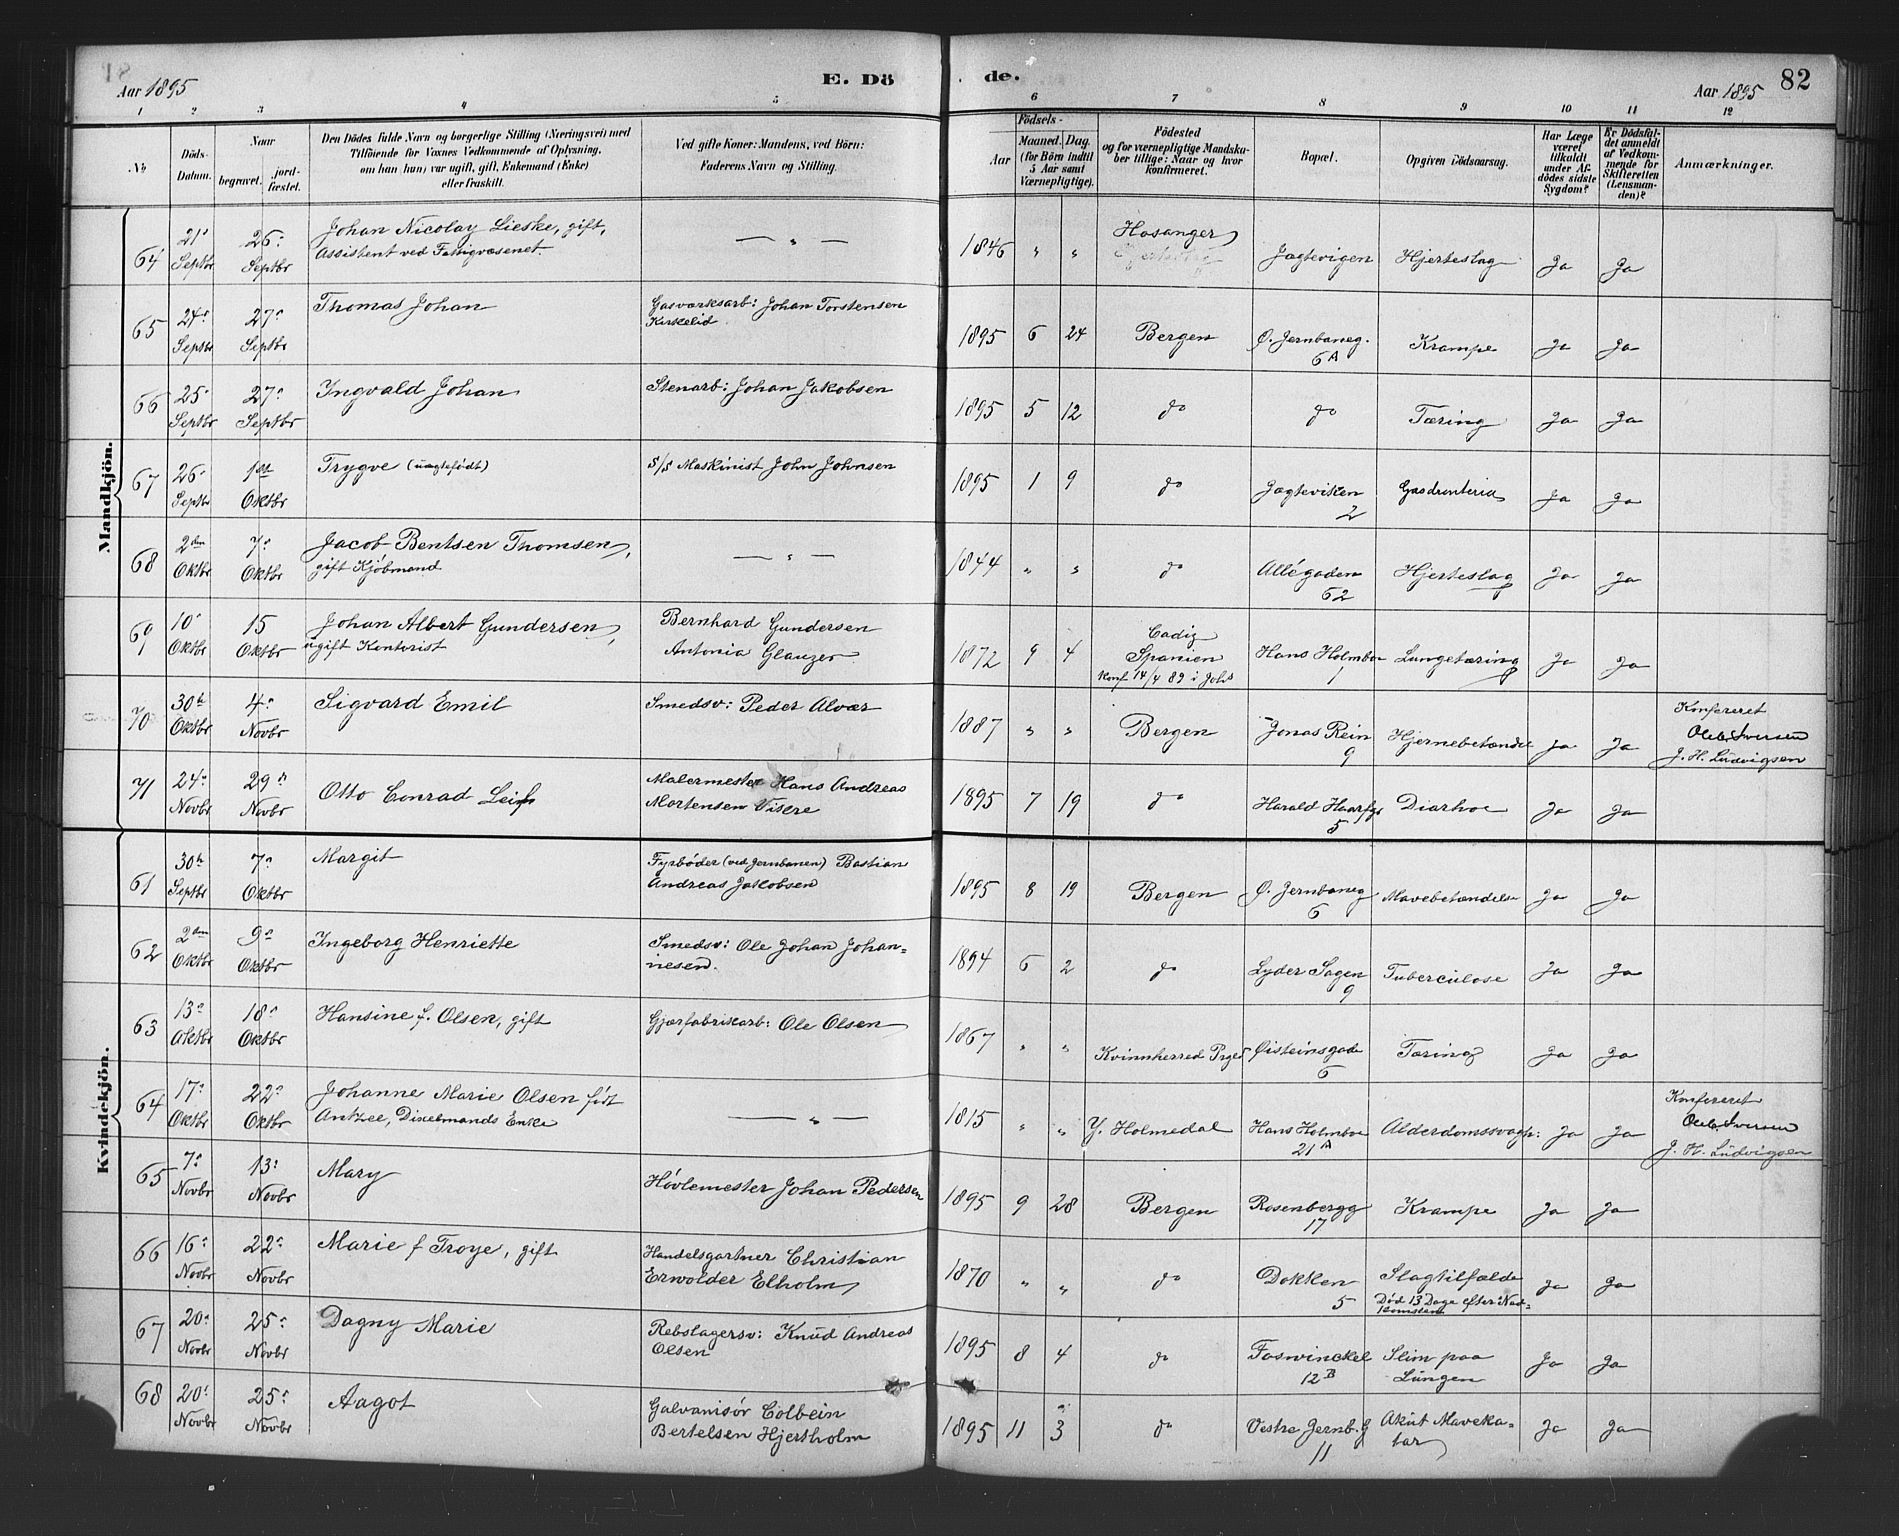 Aar 1895
E. Dö
de.
Aar 1895
82
1 2 3 4 5 6 7 8 9 10 11 12
No
Döds-Datum.
Naar
begravet. jordfæstet.
Den Dödes fulde Navn og borgerlige Stilling (Næringsvei) med
Tilföiende for Voxnes Vedkommende af Oplysning,
om han (hun) var ugift, gift, Enkemand (Enke)
eller fraskilt.
Ved gifte Koner: Mandens, ved Börn:
Faderens Navn og Stilling.
Födsels-
Aar Maaned. Dag.
(for Börn indtil
5 Aar samt
Værnepligtige).
Födested
og for værnepligtige Mandska-
ber tillige: Naar og hvor
konfirmeret.
Bopæl.
Opgiven Dödsaarsag.
Har Læge
været
tilkaldt
under Af-
dödes sidste
Sygdom?
Er Dödsfal-
det anmeldt
af Vedkom-
mende for
Skifteretten
(Lensman-
den)?
Anmærkninger.
Mandkjön.
64 21' Septbr 26' Septbr Johan Nicolay Lieske, gift, Assistent ved Fattigvæsenet. — " — 1846 " " Hosanger Jægtevigen Hjerteslag Ja Ja
65 24' Septbr 27' Septbr Thomas Johan Gasværksarb: Johan Torstensen Kirkelid 1895 6 24 Bergen Ø. Jernbaneg. 6A Krampe Ja Ja
66 25' Septbr 27' Septbr Ingvald Johan Stenarb: Johan Jakobsen 1895 5 12 do do Tæring Ja Ja
67 26' Septbr 1ste Oktbr Trygve (uægtefødt) S/S Maskinist John Johnsen 1895 1 9 do Jægteviken 2 Gasdrenteria Ja Ja
68 2den Oktbr 7' Oktbr Jacob Bentsen Thomsen, gift Kjøbmand — " — 1844 " " do Allégaden 62 Hjerteslag Ja Ja
69 10' Oktbr 15 Oktbr Johan Albert Gundersen, ugift Kontorist Bernhard Gundersen Antonia Glauzer 1872 9 4 Cadiz Spanien Konf 14/4 89 i Johs Hans Holmboe 1 Lungetæring Ja Ja
70 30te Oktbr 4' Novbr Sigvard Emil Smedsv: Peder Alvær 1887 " " Bergen Jonas Rein 9 Hjernebetændel Ja Ja Konfereret Ole Iversen J. H. Ludvigsen
71 24' Novbr 29' Novbr Otto Conrad Leif Malermester Hans Andreas Mortensen Vikre 1895 7 19 do Harald Haarfgr 5 Diarhoe Ja Ja
Kvindekjön.
61 30te Septbr 7' Oktbr Margit Fyrbøder (ved Jernbanen) Bastian Andreas Jakobsen 1895 8 19 Bergen Ø. Jernbaneg 6 Mavebetændelse Ja Ja
62 2den Oktbr 9' Oktbr Ingeborg Henriette Smedsv: Ole Johan Johan= nesen. 1894 6 2 do Lyder Sagen 9 Tuberculose Ja Ja
63 13' Oktbr 18' Oktbr Hansine f. Olsen, gift Gjærfabrikarb: Ole Olsen 1867 " " Kvinnherred Prgd Øisteinsgade 6 Tæring Ja Ja
64 17' Oktbr 22' Oktbr Johanne Marie Olsen født Antzee, Dixelmands Enke — " — 1815 " " Y. Holmedal Hans Holmboe 21A Alderdomssvagh: Ja Ja Konfereret Ole Iversen J. H. Ludvigsen
65 7' Novbr 13' Novbr Mary Høvlemester Johan Pedersen 1895 9 28 Bergen Rosenbergg 17 Krampe Ja Ja
66 16' Novbr 22' Novbr Marie f Troye, gift Handelsgartner Christian Erwolder Elholm 1870 " " do Dokken 5 Slagtilfælde Død 13 Dage efter Ned= komsten Ja Ja
67 20' Novbr 25' Novbr Dagny Marie Rebslagersv: Knud Andreas Olsen 1895 8 4 do Foswinckel 12B Slim paa Lungen Ja Ja
68 20' Novbr 25' Novbr Aagot Galvanisør Colbein Bertelsen Hjertholm 1895 11 3 do Vestre Jernb.g 11 Akut Maveka= tar Ja Ja